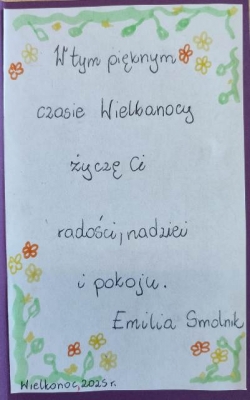 W tym pięknym
czasie Wielkanocy
życzę Ci
radości, nadziei
i pokoju.
Emilia Smolnik
Wielkanoc, 2025 r.